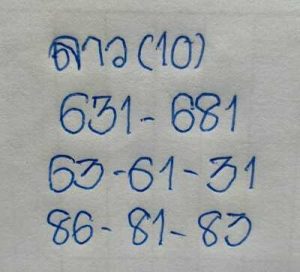 ลาว(10)
631-681
63-61-31
86-81-83